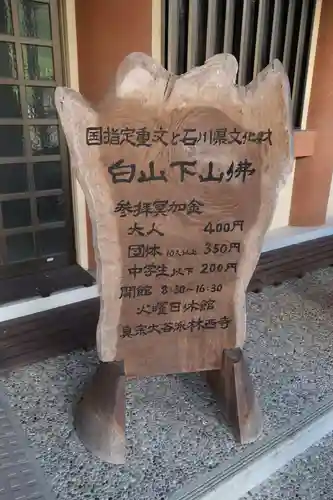 国指定重文と石川県文化財
白山下山佛
参拝冥加金
大人 400円
団体 10人以上 350円
中学生以下 200円
開館 8:30〜16:30
火曜日休館
真宗大谷派林西寺